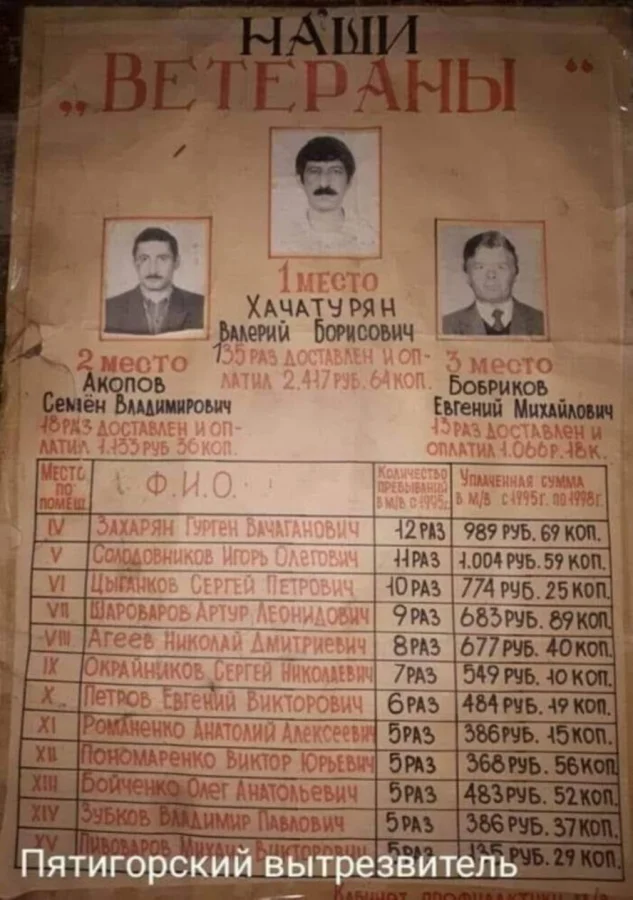 НАШИ
„ВЕТЕРАНЫ“
1 МЕСТО
ХАЧАТУРЯН
ВАЛЕРИЙ БОРИСОВИЧ
135 РАЗ ДОСТАВЛЕН И ОП-
ЛАТИЛ 2.417 РУБ. 64 КОП.
2 МЕСТО
АКОПОВ
СЕМЁН ВЛАДИМИРОВИЧ
18 РАЗ ДОСТАВЛЕН И ОП-
ЛАТИЛ 1.133 РУБ 36 КОП.
3 МЕСТО
БОБРИКОВ
ЕВГЕНИЙ МИХАЙЛОВИЧ
13 РАЗ ДОСТАВЛЕН И
ОПЛАТИЛ 1.066 Р. 18 К.
МЕСТО ПО ПОМЕЩ. Ф.И.О. КОЛИЧЕСТВО ПРЕБЫВАНИЙ В М/В С 1995г. УПЛАЧЕННАЯ СУММА В М/В С 1995г. ПО 1998г.
IV ЗАХАРЯН ГУРГЕН ВАЧАГАНОВИЧ 12 РАЗ 989 РУБ. 69 КОП.
V СОЛОДОВНИКОВ ИГОРЬ ОЛЕГОВИЧ 11 РАЗ 1.004 РУБ. 59 КОП.
VI ЦЫГАНКОВ СЕРГЕЙ ПЕТРОВИЧ 10 РАЗ 774 РУБ. 25 КОП.
VII ШАРОВАРОВ АРТУР ЛЕОНИДОВИЧ 9 РАЗ 683 РУБ. 89 КОП.
VIII АГЕЕВ НИКОЛАЙ ДМИТРИЕВИЧ 8 РАЗ 677 РУБ. 40 КОП.
IX ОКРАЙНИКОВ СЕРГЕЙ НИКОЛАЕВИЧ 7 РАЗ 549 РУБ. 10 КОП.
X ПЕТРОВ ЕВГЕНИЙ ВИКТОРОВИЧ 6 РАЗ 484 РУБ. 19 КОП.
XI РОМАНЕНКО АНАТОЛИЙ АЛЕКСЕЕВИЧ 5 РАЗ 386 РУБ. 15 КОП.
XII ПОНОМАРЕНКО ВИКТОР ЮРЬЕВИЧ 5 РАЗ 368 РУБ. 56 КОП
XIII БОЙЧЕНКО ОЛЕГ АНАТОЛЬЕВИЧ 5 РАЗ 483 РУБ. 52 КОП.
XIV ЗУБКОВ ВЛАДИМИР ПАВЛОВИЧ 5 РАЗ 386 РУБ. 37 КОП.
XV ПИВОВАРОВ МИХАИЛ ВИКТОРОВИЧ 5 РАЗ 135 РУБ. 29 КОП.
Пятигорский вытрезвитель
КАБИНЕТ ПРОФИЛАКТИКИ